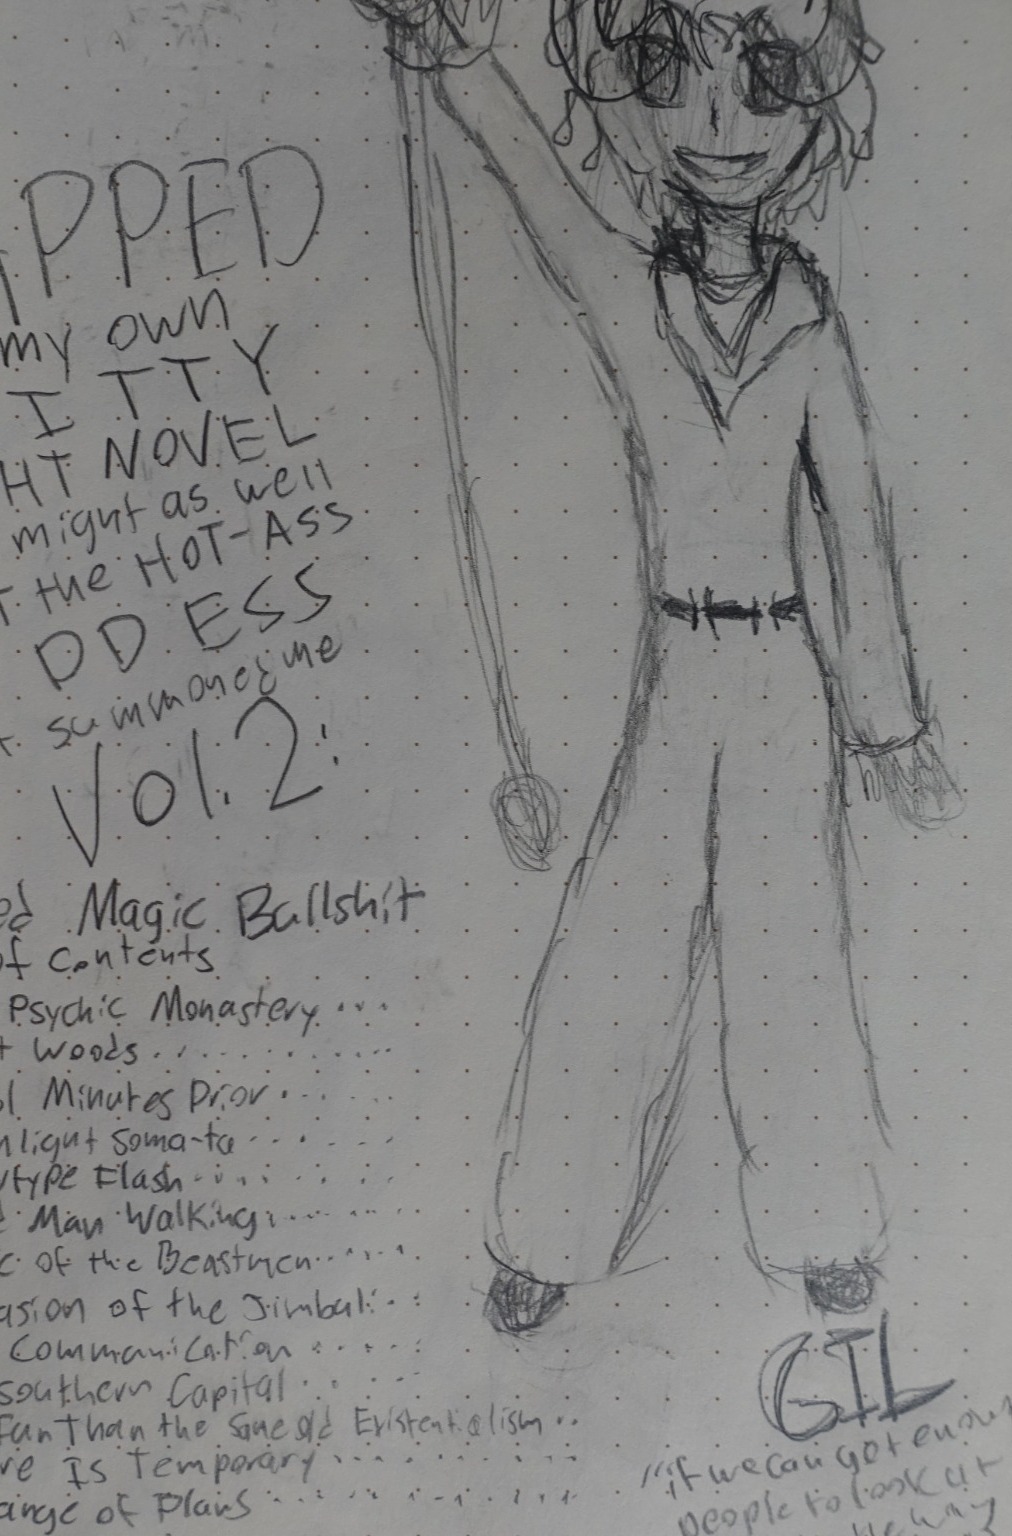 PPED
my own
ITTY
HT NOVEL
might as well
the HOT-ASS
DDESS
summoned me
Vol. 2:
ed Magic Bullshit
of contents
Psychic Monastery...
t Woods...........
Minutes Prior......
nlight Somata......
type Flash......
Man Walking......
c of the Beastmen......
asion of the Jimbali..
Communication.....
southern Capital....
Fun Than the Same old Existentialism..
re Is Temporary......
ange of Plans.........
GIL
"if we can get enough
people to look at